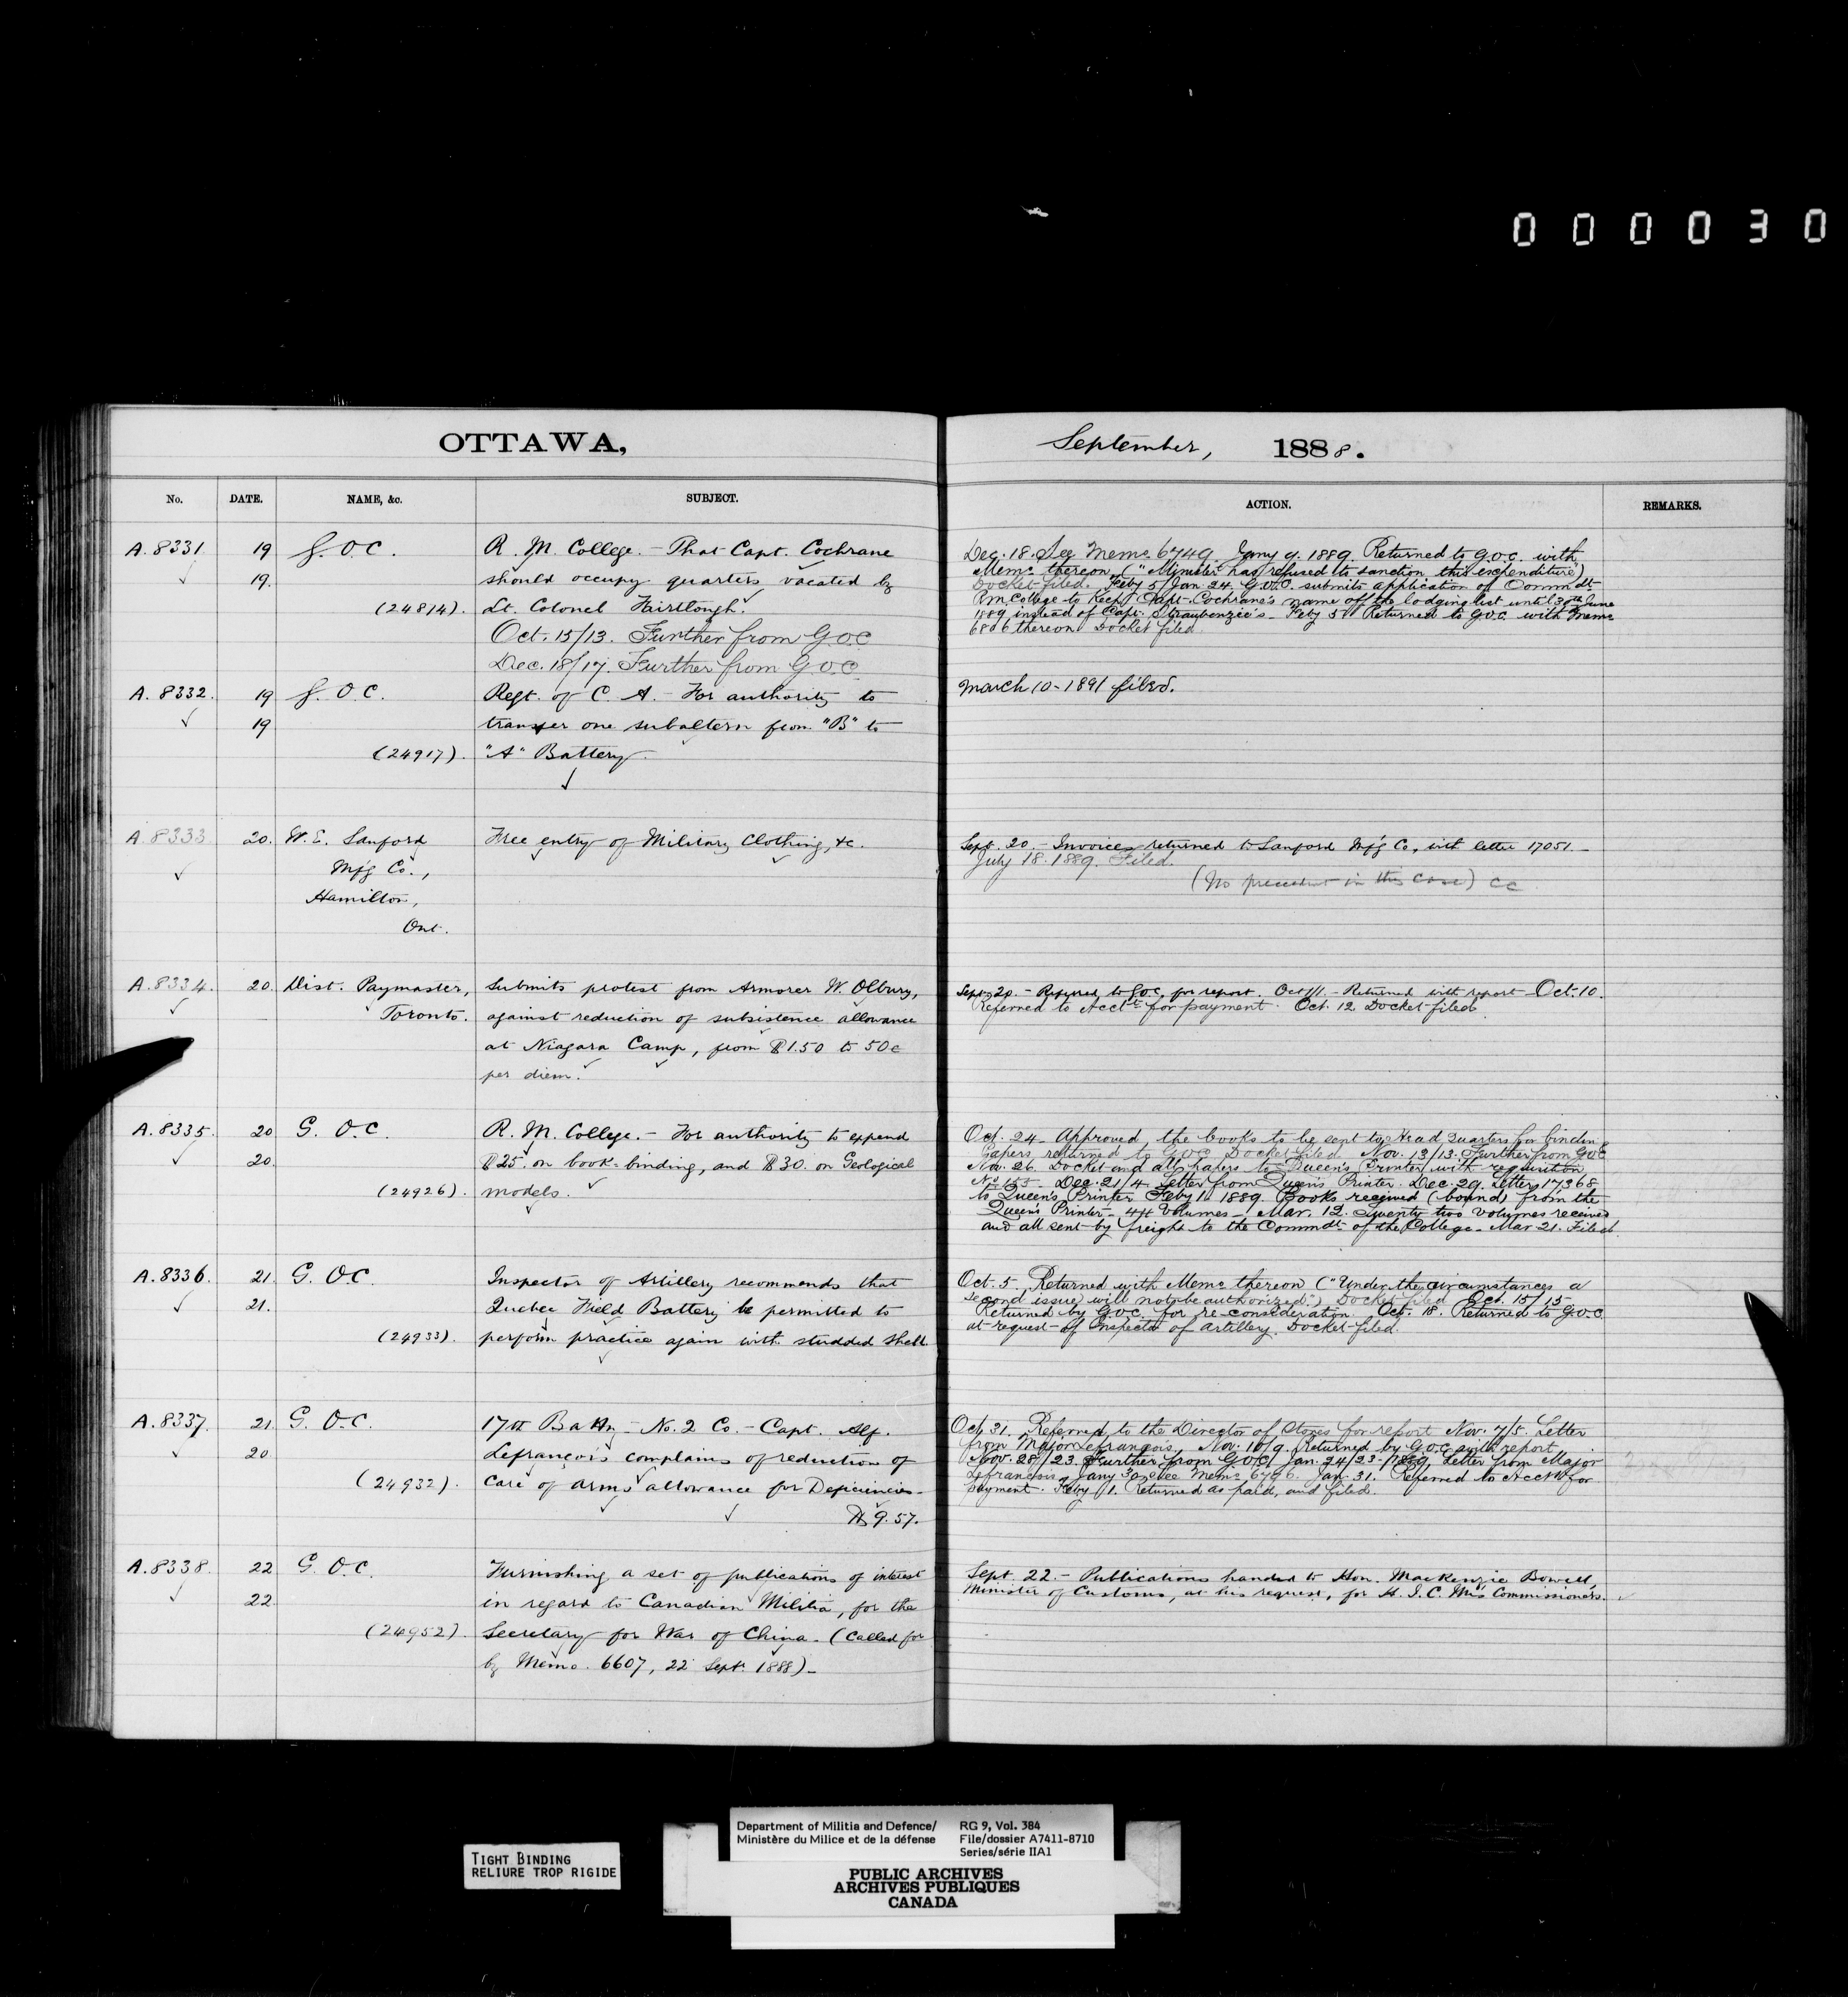 000030
OTTAWA,
September, 1888.
No. DATE. NAME, &c. SUBJECT. ACTION. REMARKS.
A. 8331 19 G. O. C. R. M. College. - That Capt. Cochrane
19. should occupy quarters vacated by
(24814). Lt. Colonel Fairtlough.
Oct. 15/13. Further from G.O.C
Dec. 18/17. Further from G.O.C.
Dec. 18. See Memo 6749 Jany 9. 1889. Returned to G.O.C. with
Memo thereon ("Minister has refused to sanction this expenditure")
Docket filed. Feby 5/Jan. 24. G.O.C. submits application of Commdt
R.M. College to keep Capt. Cochrane's name off the lodging list until 30th June
1889, instead of Capt. Straubenzie's - Feby 5 Returned to G.O.C. with Memo
6806 thereon Docket filed.
A. 8332. 19 G. O. C. Regt. of C. A. - For authority to
19 transfer one subaltern from "B" to
(24917). "A" Battery.
March 10 - 1891 filed.
A. 8333 20. W. E. Sanford Free entry of Military Clothing, &c.
Mfg Co.,
Hamilton,
Ont.
Sept. 20. - Invoices returned to Sanford Mfg Co., with letter 17051. -
July 18. 1889. Filed.
(No precedent in this case) CC
A. 8334. 20. Dist. Paymaster, Submits protest from Armorer W. Olbury,
Toronto. against reduction of subsistence allowance
at Niagara Camp, from $1.50 to 50c
per diem.
Sept. 20. - Referred to G.O.C. for report. Oct 1/1. - Returned with report - Oct. 10.
Referred to Acctt for payment. Oct. 12. Docket filed.
A. 8335. 20 G. O. C. R. M. College. - For authority to expend
20. $25. on book-binding, and $30. on Geological
(24926). models.
Oct. 24 - Approved, the books to be sent to Head Quarters for bindin
Papers returned to G.O.C. Docket filed. Nov. 13/13. Further from G.O.C
Nov. 26. Docket and all papers to Queen's Printer with requisition
No 155 - Dec. 21/4. Letter from Queen's Printer. Dec. 29. Letter 17368
to Queen's Printer Feby 1. 1889. Books received (bound) from the
Queen's Printer - 44 volumes - Mar. 12. Twenty two volumes received
and all sent by freight to the Commdt of the College - Mar 21. Filed.
A. 8336. 21 G. O. C. Inspector of Artillery recommends that
21. Quebec Field Battery be permitted to
(24933). perform practice again with studded shell.
Oct. 5. Returned with Memo thereon ("Under the circumstances a
second issue will not be authorized.") Docket filed Oct. 15/15 -
Returned by G.O.C. for re-consideration. Oct. 18. Returned to G.O.C.
at request of Inspector of Artillery. Docket filed.
A. 8337. 21 G. O. C. 17th Battn - No. 2 Co. - Capt. Alf.
20. Lefrançois complains of reduction of
(24932). care of arms allowance for Deficiencies -
$9.57.
Oct 31. Referred to the Director of Stores for report Nov. 7/5. Letter
from Major Lefrançois, Nov. 10/9. Returned by G.O.C. with report
Nov. 28/23. Further from G.O.C. Jan. 24/23 - 1889, Letter from Major
Lefrançois Jany 30. See Memo 6796. Jan. 31. Referred to Acctt for
payment. Feby 1. Returned as paid, and filed.
A. 8338. 22 G. O. C. Furnishing a set of publications of interest
22 in regard to Canadian Militia, for the
(24952). Secretary for War of China. (Called for
by Memo. 6607, 22 Sept. 1888) -
Sept. 22. - Publications handed to Hon. MacKenzie Bowell,
Minister of Customs, at his request, for H. I. C. M's Commissioners.
Department of Militia and Defence/
Ministère du Milice et de la défense
RG 9, Vol. 384
File/dossier A7411-8710
Series/série IIA1
TIGHT BINDING
RELIURE TROP RIGIDE
PUBLIC ARCHIVES
ARCHIVES PUBLIQUES
CANADA